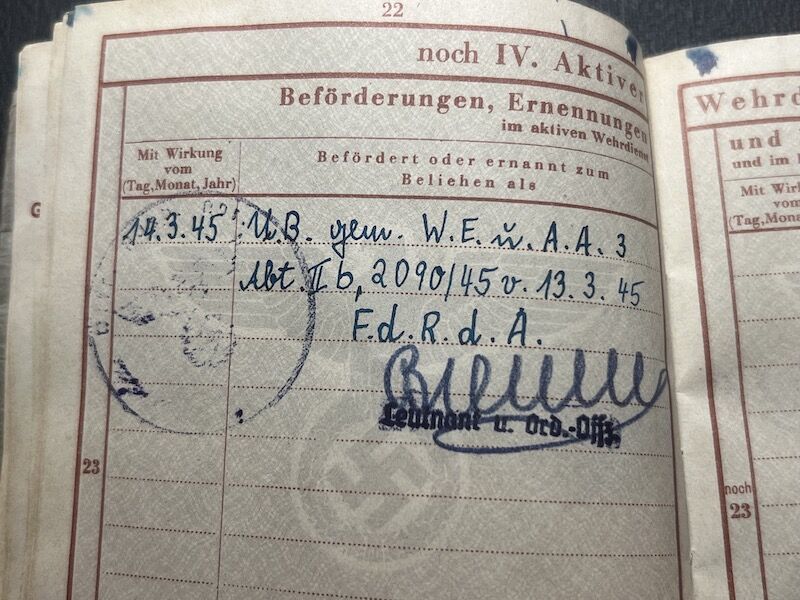 22
noch IV. Aktiver
Beförderungen, Ernennungen
im aktiven Wehrdienst
Mit Wirkung
vom
(Tag, Monat, Jahr)
Befördert oder ernannt zum
Beliehen als
14.3.45 U.B. gem. W.E. u. A.A. 3
Abt. IIb, 2090/45 v. 13.3.45
F.d.R.d.A.
Leutnant u. Ord.-Offz.
23
G
Wehrd
und
und im
Mit Wirk
vom
(Tag, Mona
noch
23